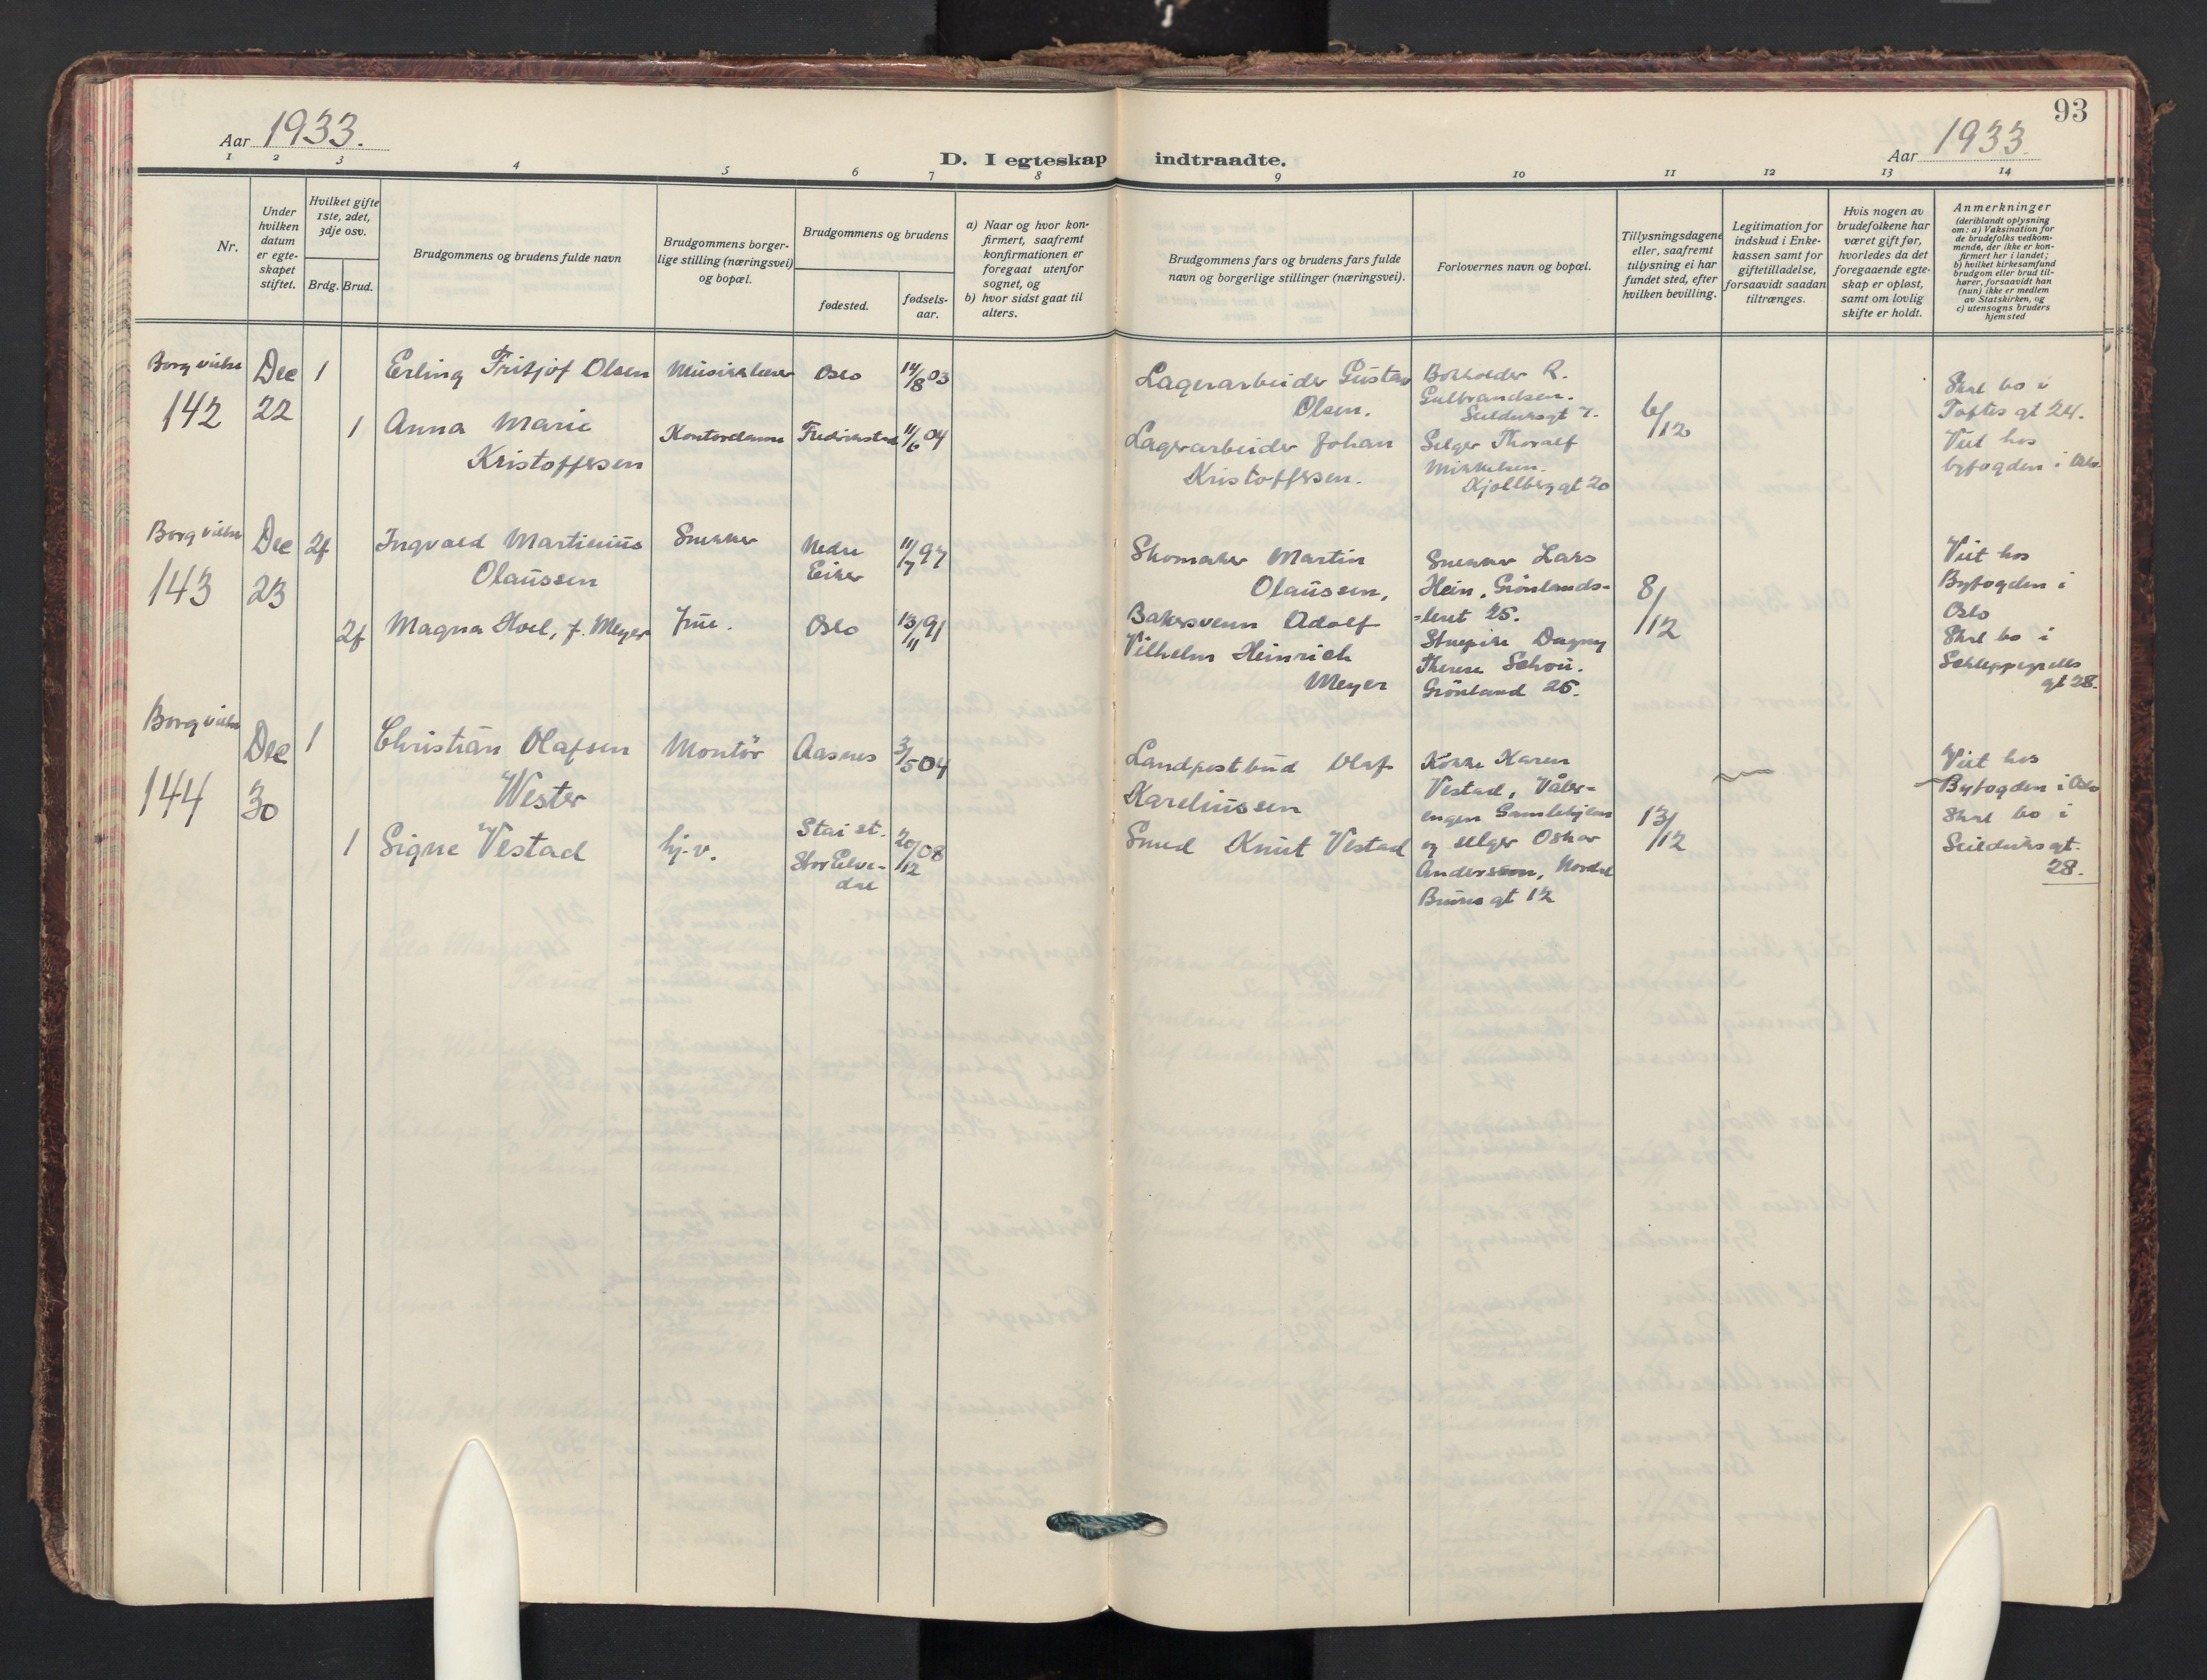 93
Aar 1933.
Aar 1933.
D. I egteskap indtraadte.
1 2 3 4 5 6 7 8 9 10 11 12 13 14
Nr.
Under
hvilken
datum
er egte-
skapet
stiftet.
Hvilket gifte
1ste, 2det,
3dje osv.
Brdg. Brud.
Brudgommens og brudens fulde navn
Brudgommens borger-
lige stilling (næringsvei)
og bopæl.
Brudgommens og brudens
fødested.
fødsels-
aar.
a) Naar og hvor kon-
firmert, saafremt
konfirmationen er
foregaat utenfor
sognet, og
b) hvor sidst gaat til
alters.
Brudgommens fars og brudens fars fulde
navn og borgerlige stillinger (næringsvei).
Forlovernes navn og bopæl.
Tillysningsdagene
eller, saafremt
tillysning ei har
fundet sted, efter
hvilken bevilling.
Legitimation for
indskud i Enke-
kassen samt for
giftetilladelse,
forsaavidt saadan
tiltrænges.
Hvis nogen av
brudefolkene har
været gift før,
hvorledes da det
foregaaende egte-
skap er opløst,
samt om lovlig
skifte er holdt.
Anmerkninger
(deriblandt oplysning
om: a) Vaksination for
de brudefolks vedkom-
mende, der ikke er kon-
firmert her i landet;
b) hvilket kirkesamfund
brudgom eller brud til-
hører, forsaavidt han
(hun) ikke er medlem
av Statskirken, og
c) utensogns bruders
hjemsted
Borg vielse
142
Dec
22
1
Erling Fritjof Olsen
Musikklærer
Oslo
14/8 03
1
Anna Marie
Kristoffersen
Kontordame
Fredrikstad
11/6 04
Lagerarbeider Gustav
Olsen.
Lagerarbeider Johan
Kristoffersen.
Bokholder R.
Gulbrandsen.
Seildursgt 7.
Selger Thoralf
Mikkelsen.
Kjølberggt 20
6/12
Skal bo i
Toftes gt 24.
Viet hos
byfogden i Oslo
Borg vielse
143
Dec
23
2f
Ingvald Martinius
Olaussen
Snekker
Nedre
Eiker
11/7 97
2f
Magna Hoel, f. Meyer
Frue.
Oslo
13/11 91
Skomaker Martin
Olaussen,
Bakersvenn Adolf
Vilhelm Heinrich
Meyer
Snekker Lars
Hein, Grönlands-
=leret 25.
Stuepike Dagny
Therese Schou.
Grönland 25.
8/12
Viet hos
Byfogden i
Oslo
Skal bo i
Schleppegrells
gt 28.
Borg vielse
144
Dec
30
1
Christian Olafsen
Wester
Montör
Aasnes
3/5 04
1
Signe Vestad
hj.v.
Stai st.
Stor Elve-
dal
20/12 08
Landpostbud Olaf
Kareliussen
Smed Knut Vestad
Kokke Karen
Vestad, Våler-
engen Gamlehjem
og selger Oskar
Andersson, Nordal
Bruns gt 12
13/12
Viet hos
Byfogden i Oslo
Skal bo i
Seildursgt.
28.